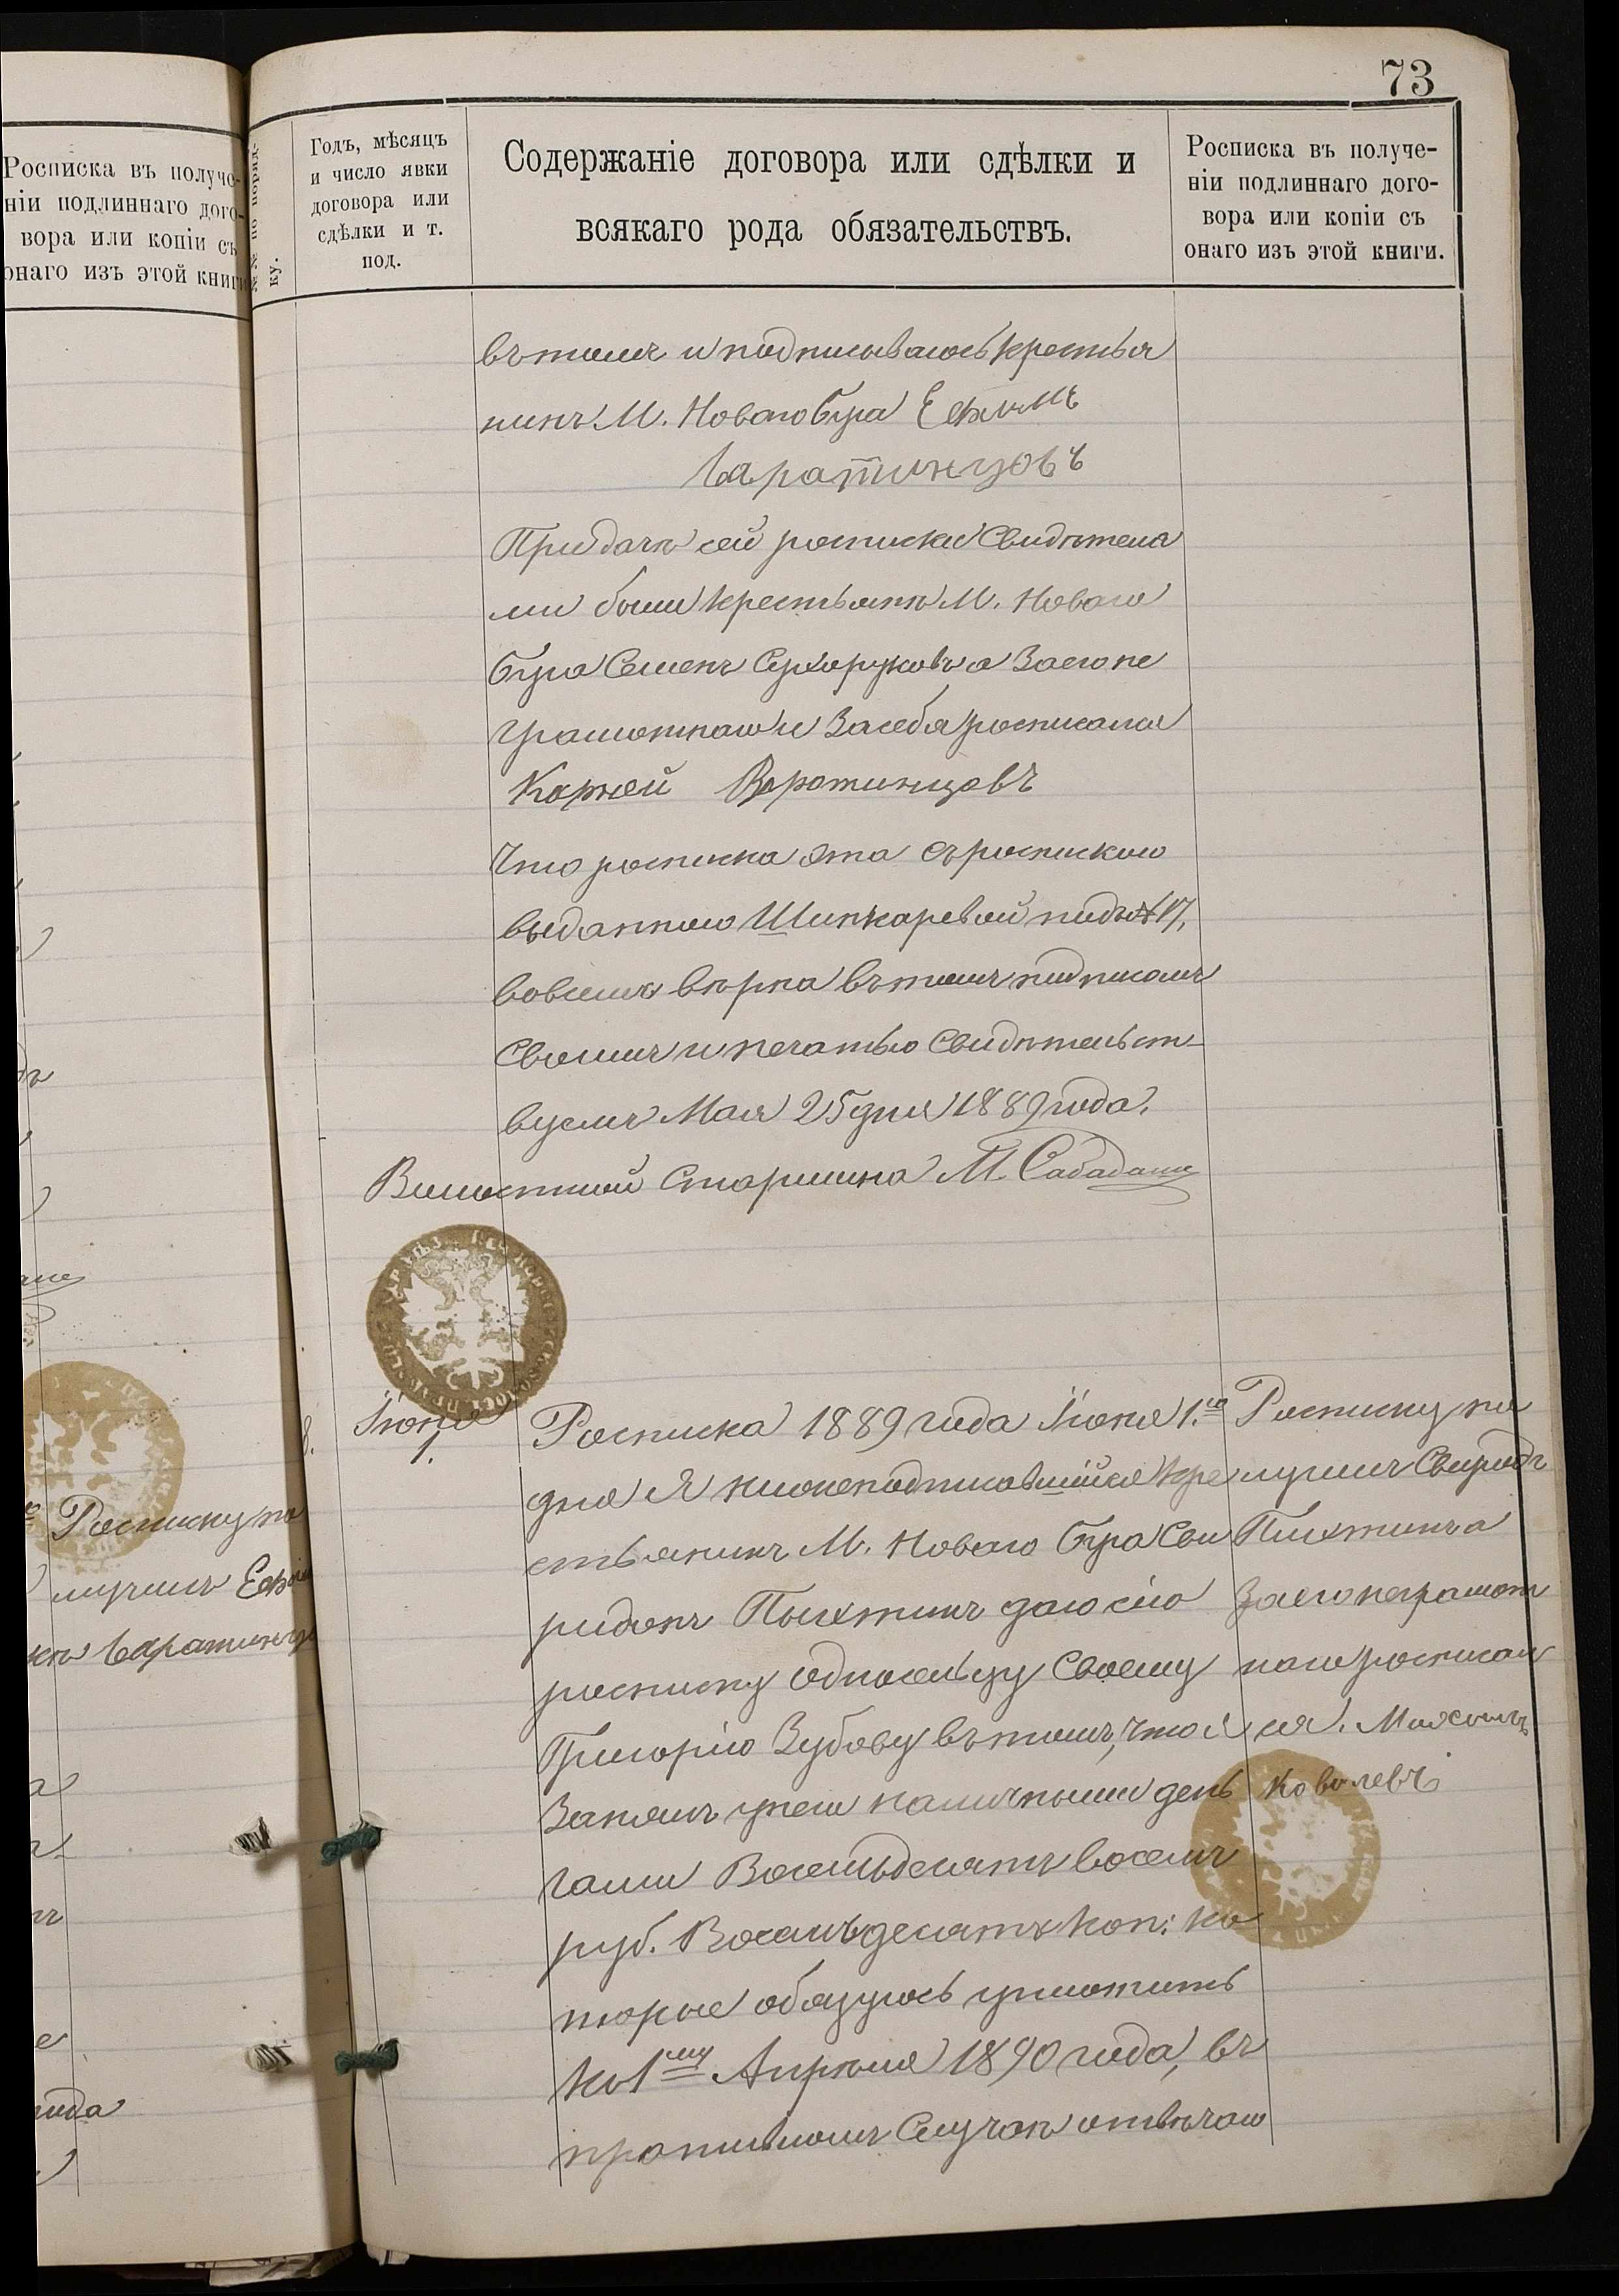 73
Росписка въ получе-
ніи подлиннаго дого-
вора или копіи съ
онаго изъ этой книги
№№ по поряд-
ку.
Годъ, мѣсяцъ
и число явки
договора или
сдѣлки и т.
под.
Содержаніе договора или сдѣлки и
всякаго рода обязательствъ.
Росписка въ получе-
ніи подлиннаго дого-
вора или копіи съ
онаго изъ этой книги.
Росписку по
лучилъ Ефи
въ томъ и подписываюсь крестья
нинъ М. Новаго Буга Ефимъ
Варатинцовъ
При дачѣ сей росписки свидѣтеля
ми были крестьяне М. Новаго
Буга Семенъ Сухоруковъ а за его не
грамотнаго и за себя росписался
Карней Воротинцовъ
Что росписка эта съ роспискою
выданною Шинкаревой подъ № 17,
вовсемъ вѣрна въ томъ подписомъ
своимъ и печатью свидѣтельст-
вуемъ Мая 25 дня 1889 года.
Волостной Старшина М. Сабадаш
8.
Іюня
1.
Росписка 1889 года Іюня 1.го
дня Я нижеподписавшійся кре
стьянинъ М. Новаго Буга Сви
ридонъ Пыхтинъ даю сію
росписку односельцу своему
Григорію Зубову въ томъ, что я
занялъ у него наличными день
гами Восемьдесятъ восемь
руб. Восемьдесятъ коп: ко
торые обязуюсь уплотить
къ 1му Апрѣля 1890 года, въ
противномъ случаѣ отвѣчаю
Росписку по
лучилъ Свирид
Пыхтинъ а
за его неграмот
наго росписал
ся. Максимъ
Ковалевъ